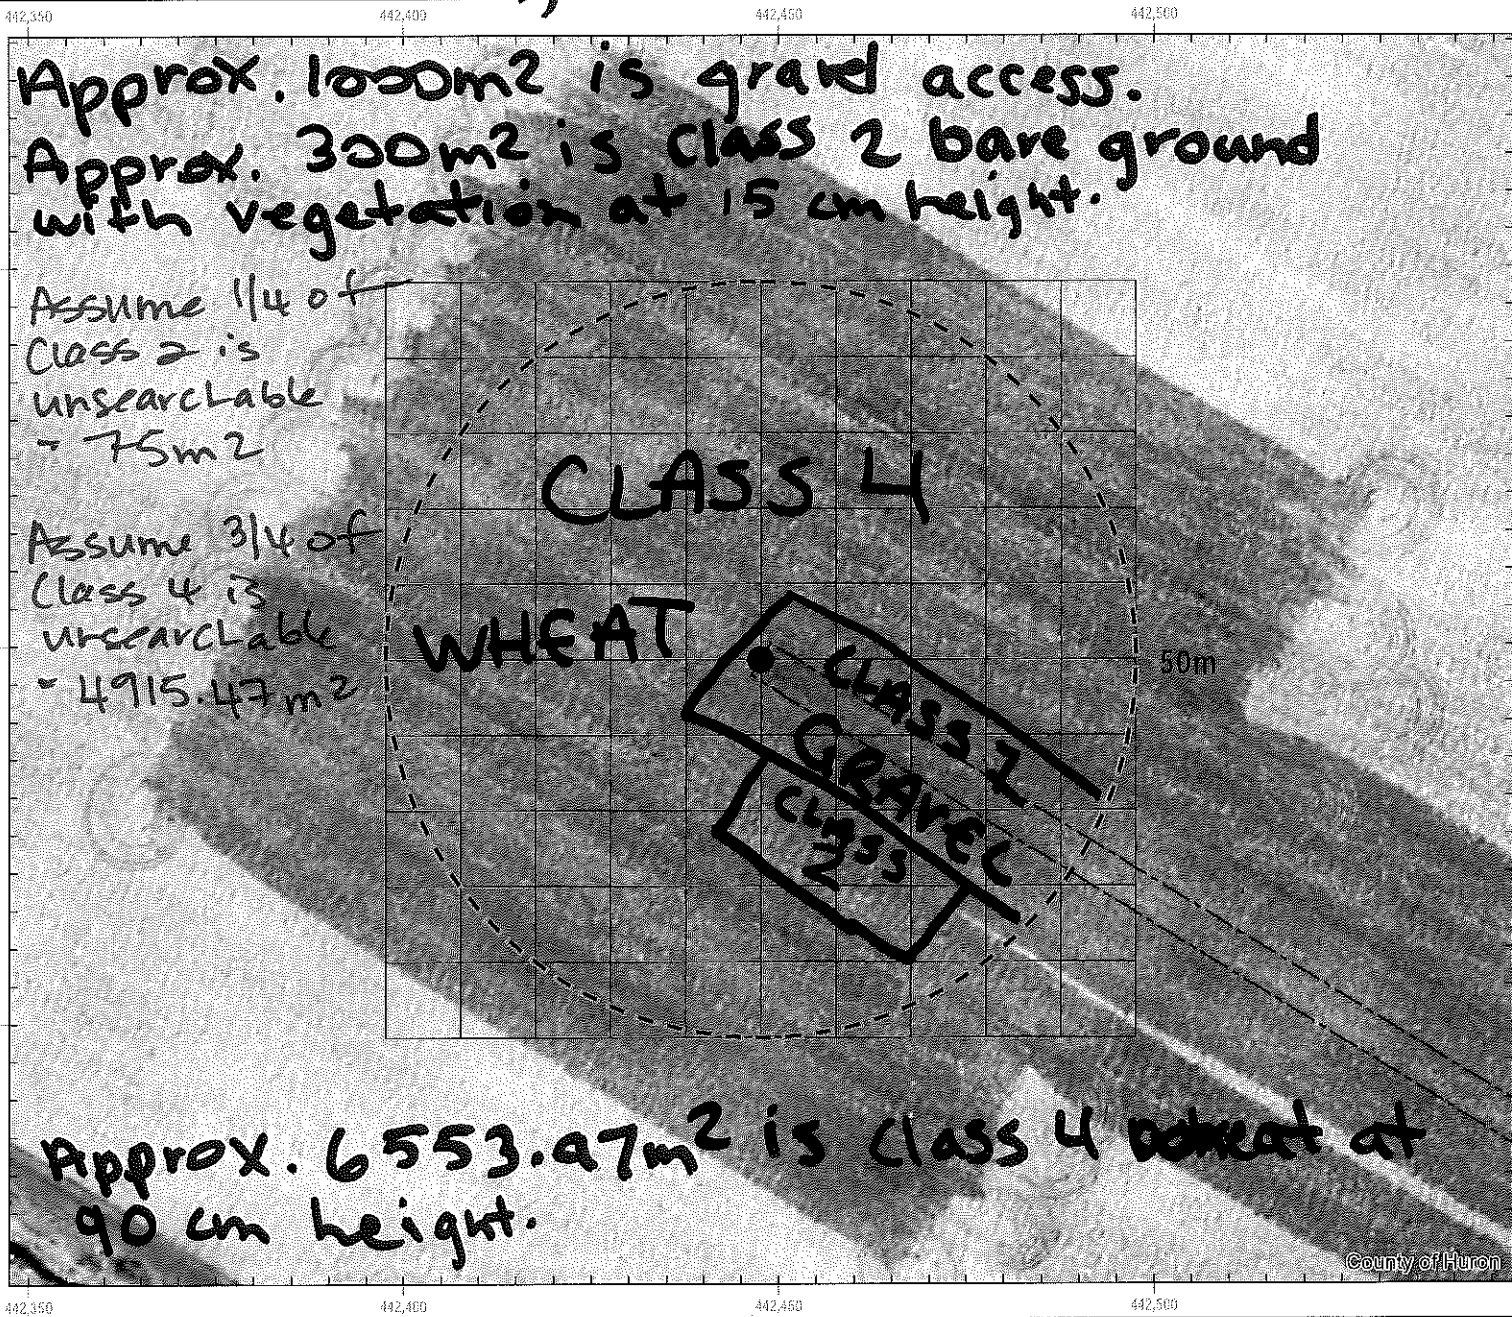 442,350 442,400 442,450 442,500
Approx. 1000m2 is gravel access.
Approx. 300m2 is Class 2 bare ground
with vegetation at 15 cm height.
Assume 1/4 of
Class 2 is
unsearchable
- 75m2
Assume 3/4 of
Class 4 is
unsearchable
- 4915.47m2
CLASS 4
WHEAT
50m
CLASS 1
GRAVEL
CLASS
2
Approx. 6553.97m2 is Class 4 wheat at
90 cm height.
County of Huron
442,350 442,400 442,450 442,500